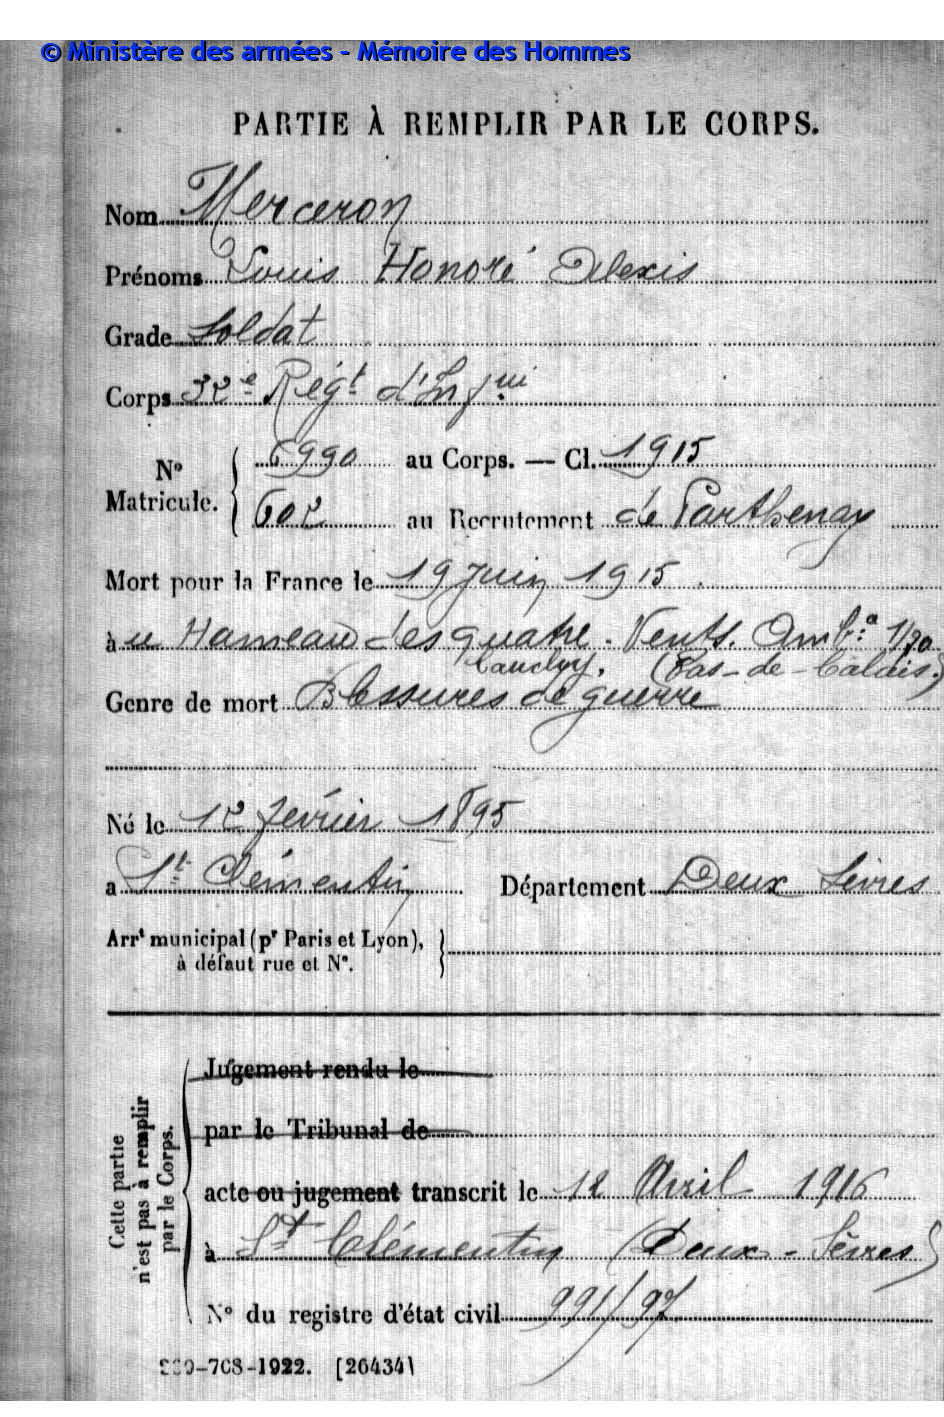 © Ministère des armées - Mémoire des Hommes
PARTIE À REMPLIR PAR LE CORPS.
Nom Merceron
Prénoms Louis Honoré Alexis
Grade Soldat
Corps 32e Régt d'Infrie
N° Matricule. 6990 au Corps. — Cl. 1915
602 au Recrutement de Parthenay
Mort pour la France le 19 Juin 1915
à u Hameau des quatre-Vents. Ambce 1/20
Cauchy. (Pas-de-Calais.)
Genre de mort Blessures de guerre
Né le 12 février 1895
a St Clémentin Département Deux Sèvres
Arrt municipal (pr Paris et Lyon),
à défaut rue et N°.
Cette partie n'est pas à remplir par le Corps.
Jugement rendu le
par le Tribunal de
acte ou jugement transcrit le 12 Avril 1916
à St Clémentin (Deux-Sèvres)
N° du registre d'état civil 991/97
-708-1922. [26434]